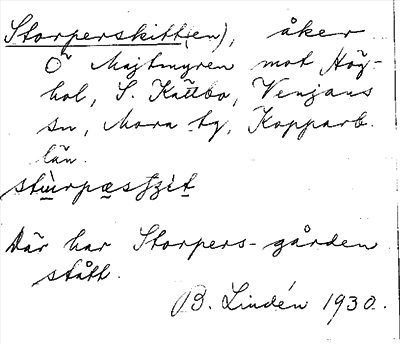 Storperskitt(en), åker
Ö Majtmyren mot Hög-
hol, S. Kättbo, Venjans
sn, Mora tg, Kopparb.
län.
stùrpæsʃzit
Där har Storpers-gården
stått.
B. Lindén 1930.